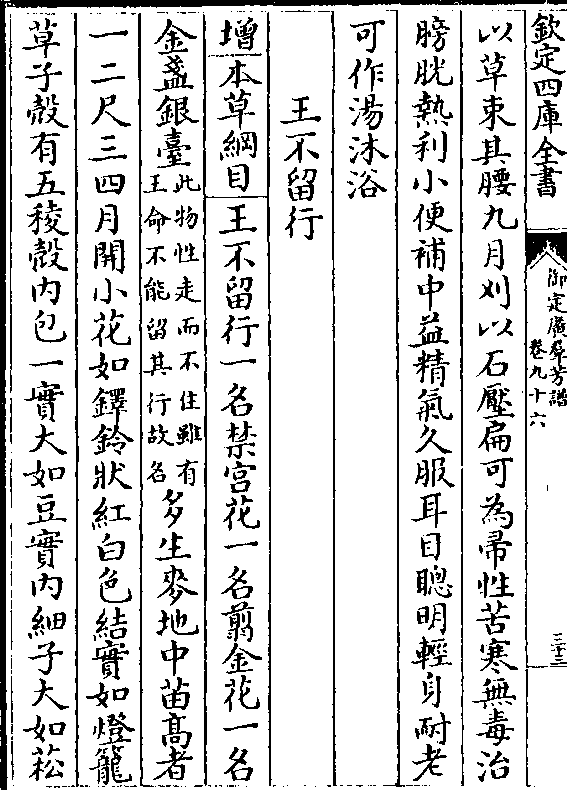 欽定四庫全書
御定廣羣芳譜
卷九十六
三十三
以草束其腰九月刈以石壓扁可為帚性苦寒無毒治
膀胱熱利小便補中益精氣久服耳目聰明輕身耐老
可作湯沐浴
王不留行
增本草綱目王不留行一名禁宫花一名翦金花一名
金盞銀臺此物性走而不住雖有王命不能留其行故名多生麥地中苗髙者
一二尺三四月開小花如鐸鈴狀紅白色結實如燈籠
草子殻有五稜殻内包一實大如豆實内細子大如菘